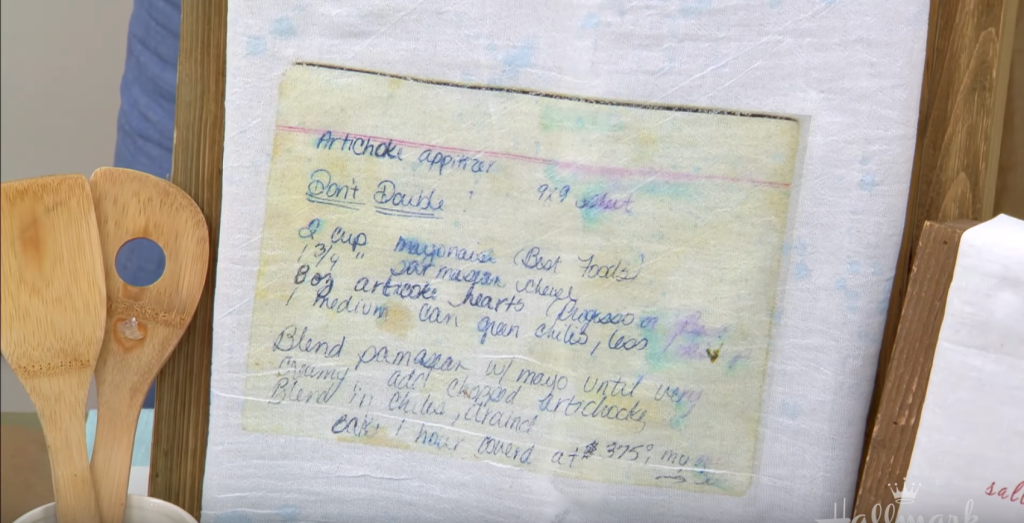 Artichoke appitizer
Don't Double : 9x9
2 cup mayonaise (Best Foods)
1 3/4 " parmasan cheese
8 oz articoke hearts (
1 medium can green chilis, less
Blend pamasan w/ mayo until very
creamy add chopped artichocks
Blend in chilis, draind
bake 1 hour coverd at 375°,
Hallmark